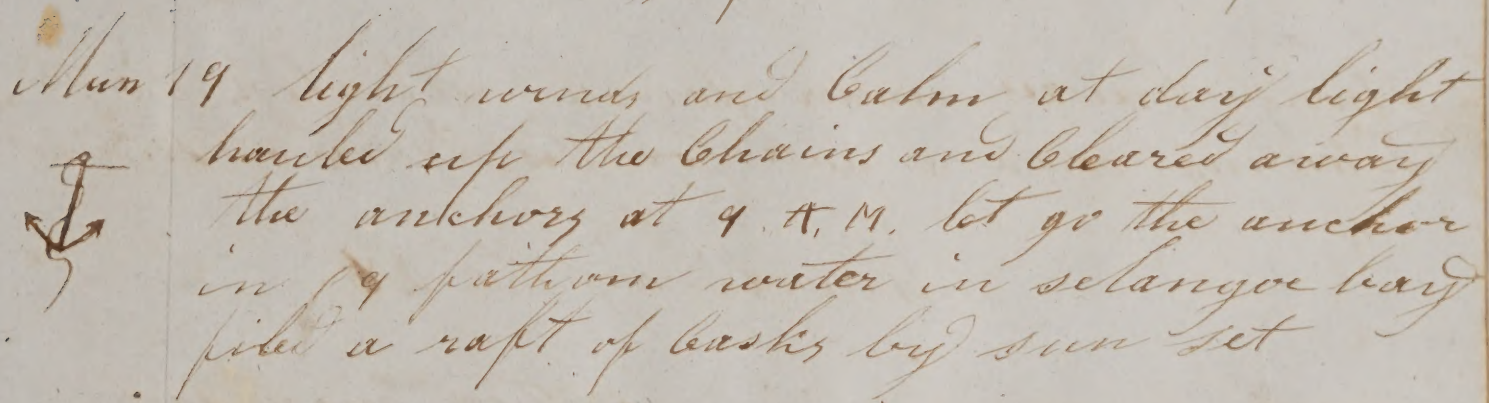 Mun 19 light winds and Calm at day light
hauled up the Chains and Cleared away
the anchors at 9 A, M, let go the anchor
in 19 fathom water in selangoe bay
filed a raft of Casks by sun set